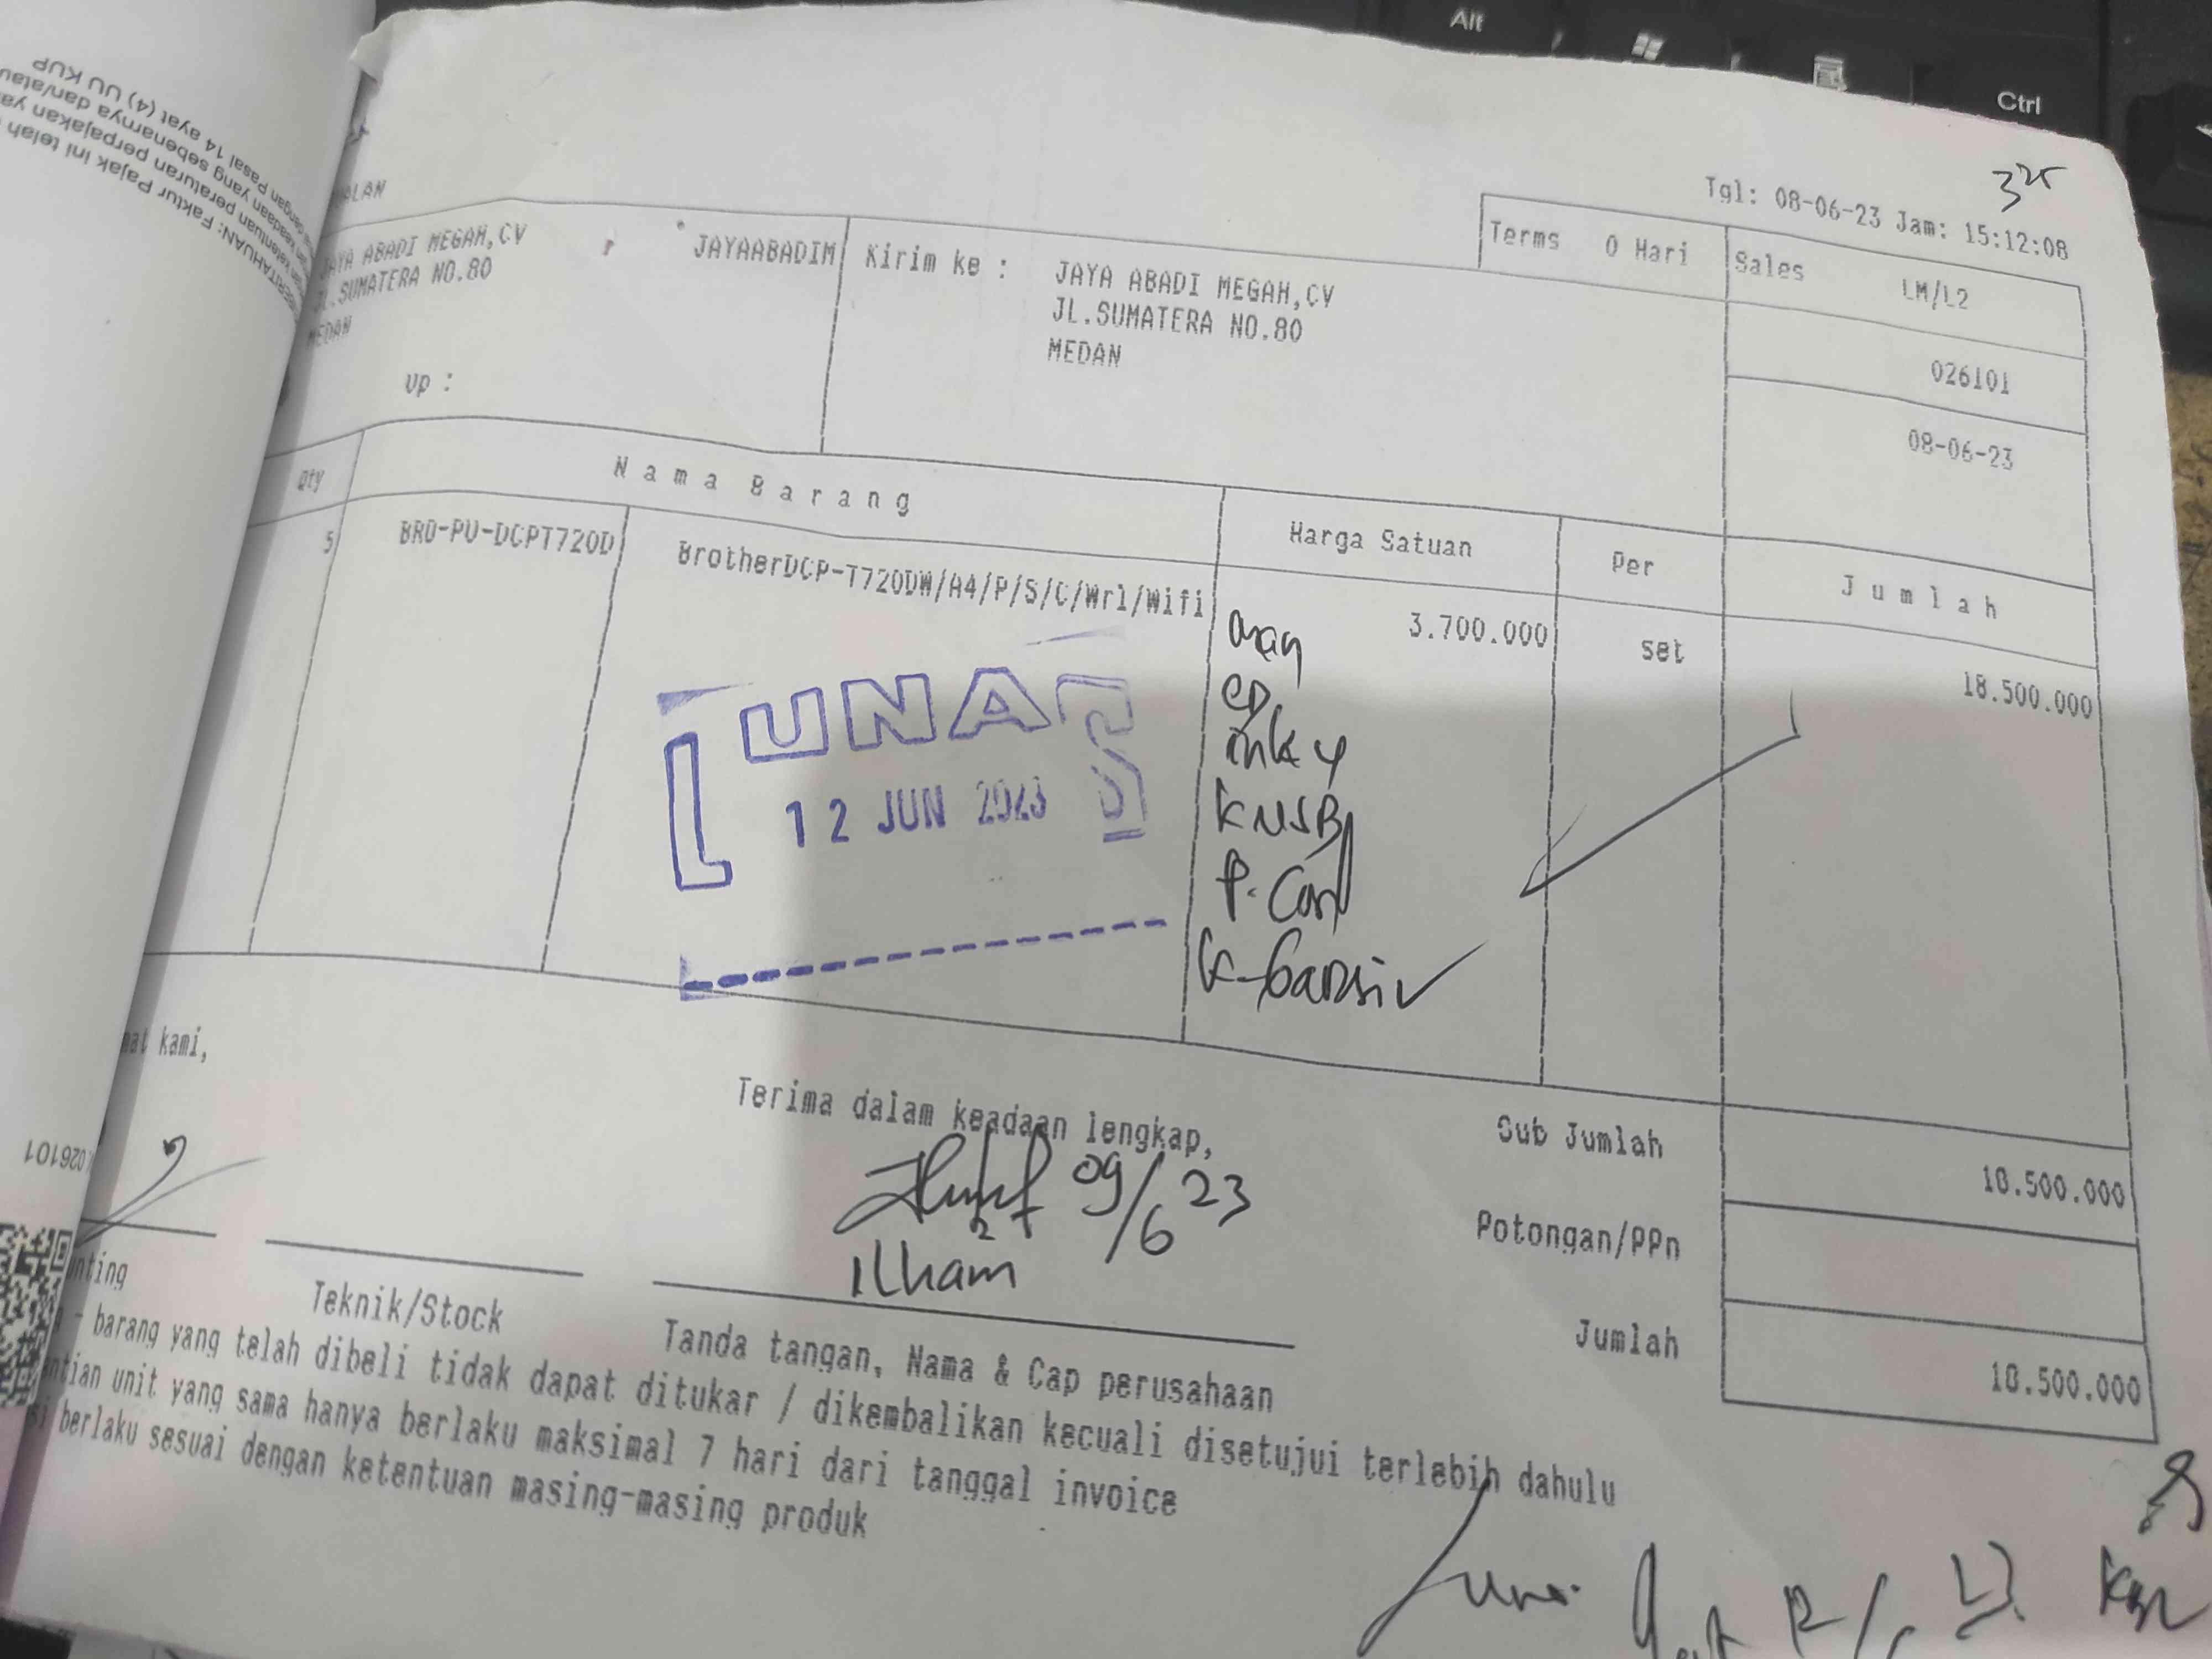 Alt
Ctrl
Tgl: 08-06-23 Jam: 15:12:08
Terms 0 Hari
Sales LM/L2
026101
08-06-23
JAYA ABADI MEGAH,CV
JL.SUMATERA NO.80
MEDAN
up :
JAYAABADIM
Kirim ke :
JAYA ABADI MEGAH,CV
JL.SUMATERA NO.80
MEDAN
Qty
Nama Barang
Harga Satuan
Per
Jumlah
5
BRO-PU-DCPT720D
BrotherDCP-T720DW/A4/P/S/C/Wrl/Wifi
3.700.000
set
18.500.000
LUNAS
12 JUN 2023
KUSB
Terima dalam keadaan lengkap,
09/6 23
Ilham
kami,
Teknik/Stock
Tanda tangan, Nama & Cap perusahaan
Sub Jumlah
18.500.000
Potongan/PPn
Jumlah
18.500.000
- barang yang telah dibeli tidak dapat ditukar / dikembalikan kecuali disetujui terlebih dahulu
unit yang sama hanya berlaku maksimal 7 hari dari tanggal invoice
berlaku sesuai dengan ketentuan masing-masing produk
Faktur Pajak ini telah
peraturan perpajakan
keadaan yang sebenarnya dan/atau
dengan Pasal 14 ayat (4) UU KUP
026101